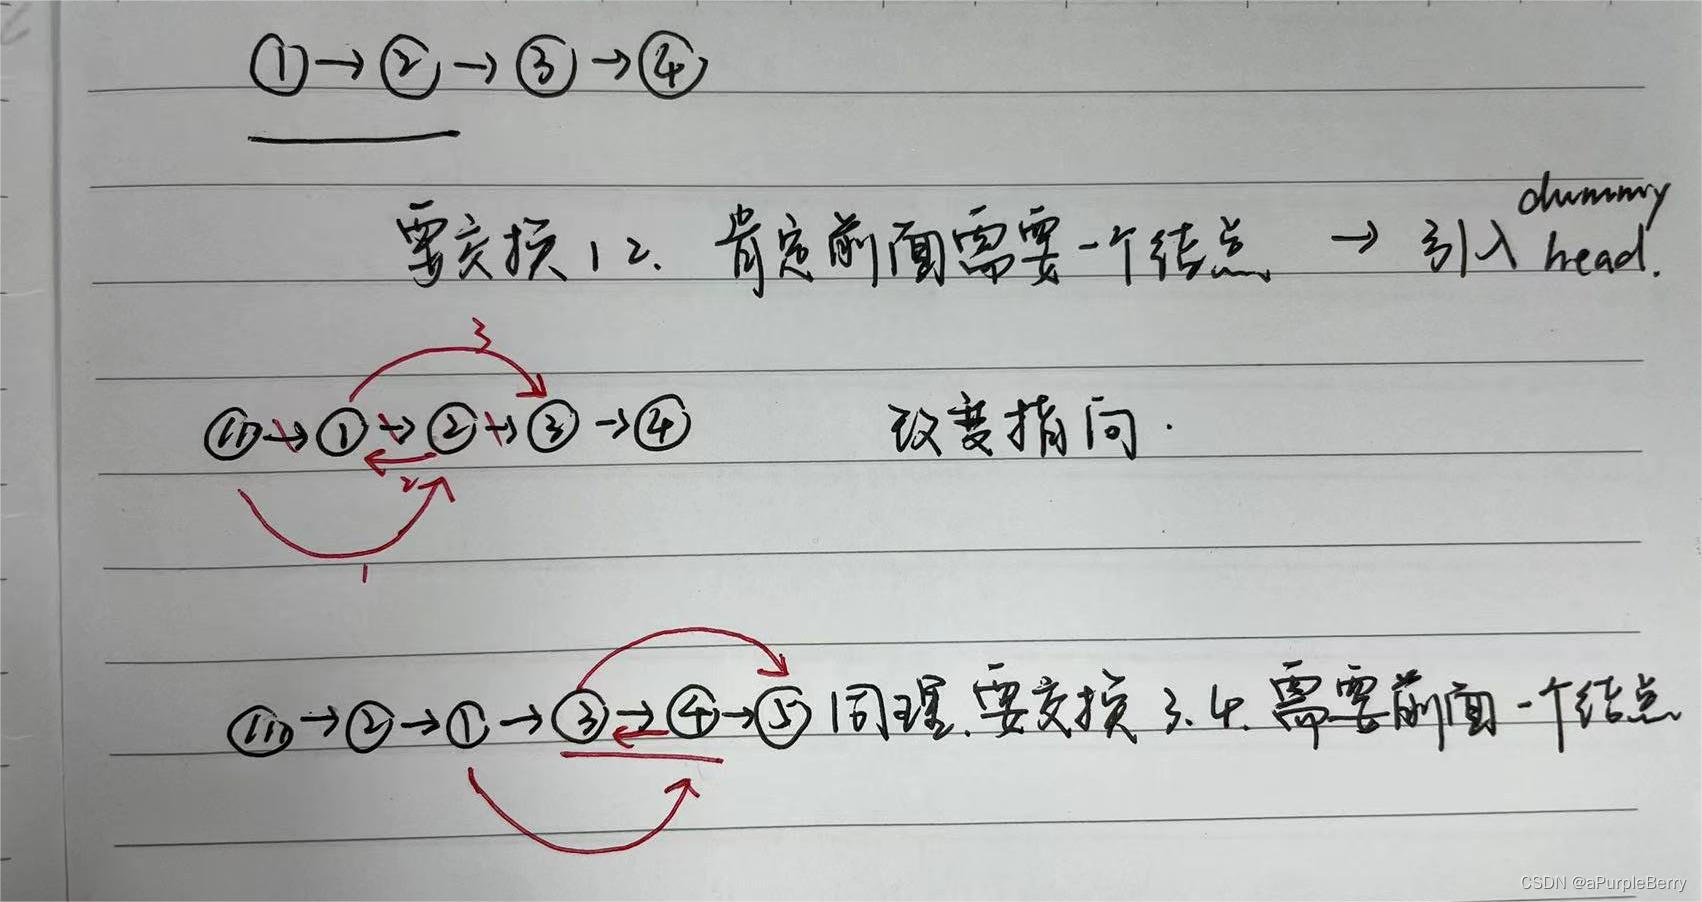 ① → ② → ③ → ④
要交换 1 2. 肯定前面需要一个结点 → 引入 dummy head.
3
→ ① → ② → ③ → ④ 改变指向.
2
1
→ ② → ① → ③ → ④ → ⑤ 同理.要交换 3.4.需要前面一个结点
CSDN @aPurpleBerry